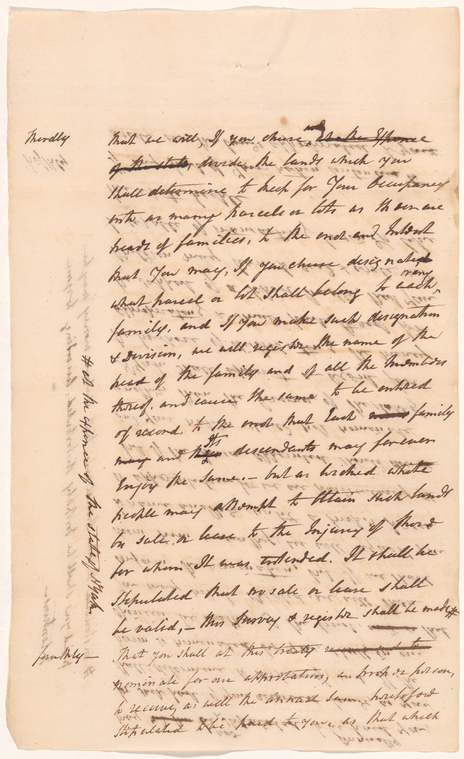 Thirdly
that we will If you chuse, and at the Expence
of the state, divide the lands which you
shall determine to keep for Your Occupancy
into as many parcels or lots as there are
heads of families, to the end and Intent
that You may, If you chuse designate
what parcel or lot shall belong to each
family, and If You make such designation
& division, we will register the name of the
head of the family and of all the Members
thereof. and cause the same to be entered
of record. to the end that Each family
and descendants may forever
Enjoy the same. – but as wicked white
people may attempt to Obtain such lands
on sale or lease to the Injury of those
for whom It was intended. It shall be
stipulated that no sale or lease shall
be valid, – this Survey & register shall be made #
# at the expence of the state of
fourthly –
That you shall at this treaty
nominate for our approbation, a proper person,
to receive as well the annual Sum heretofore
stipulated to be paid to you, as that which